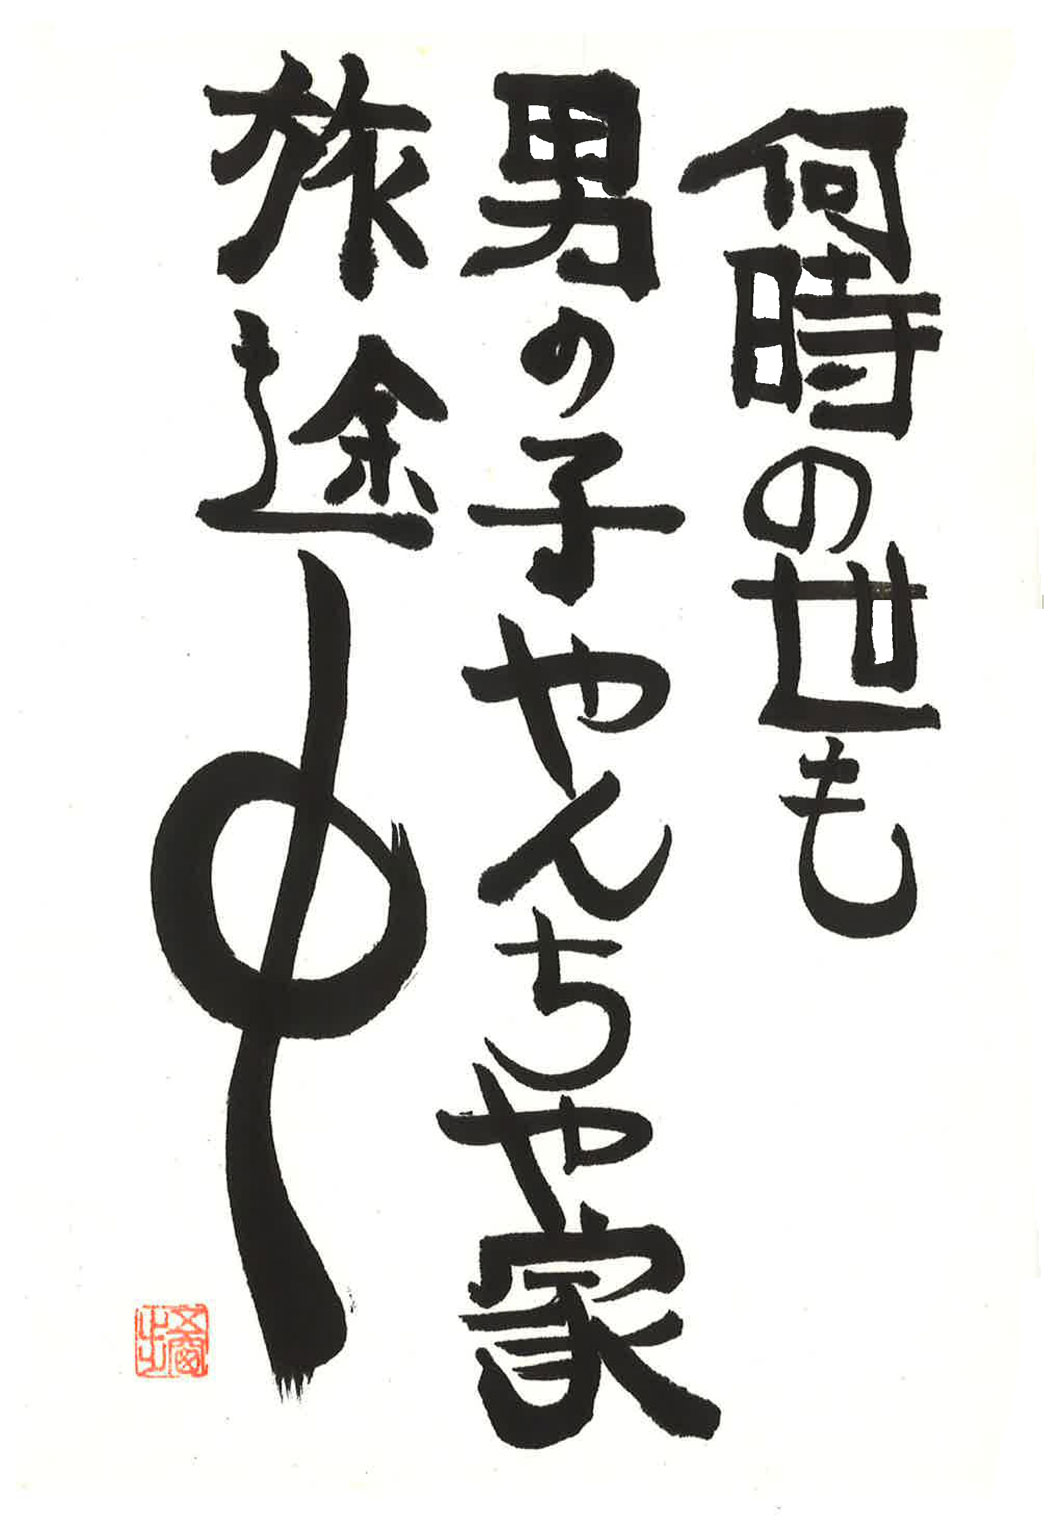 何時の世も
男の子やんちや家
旅途中